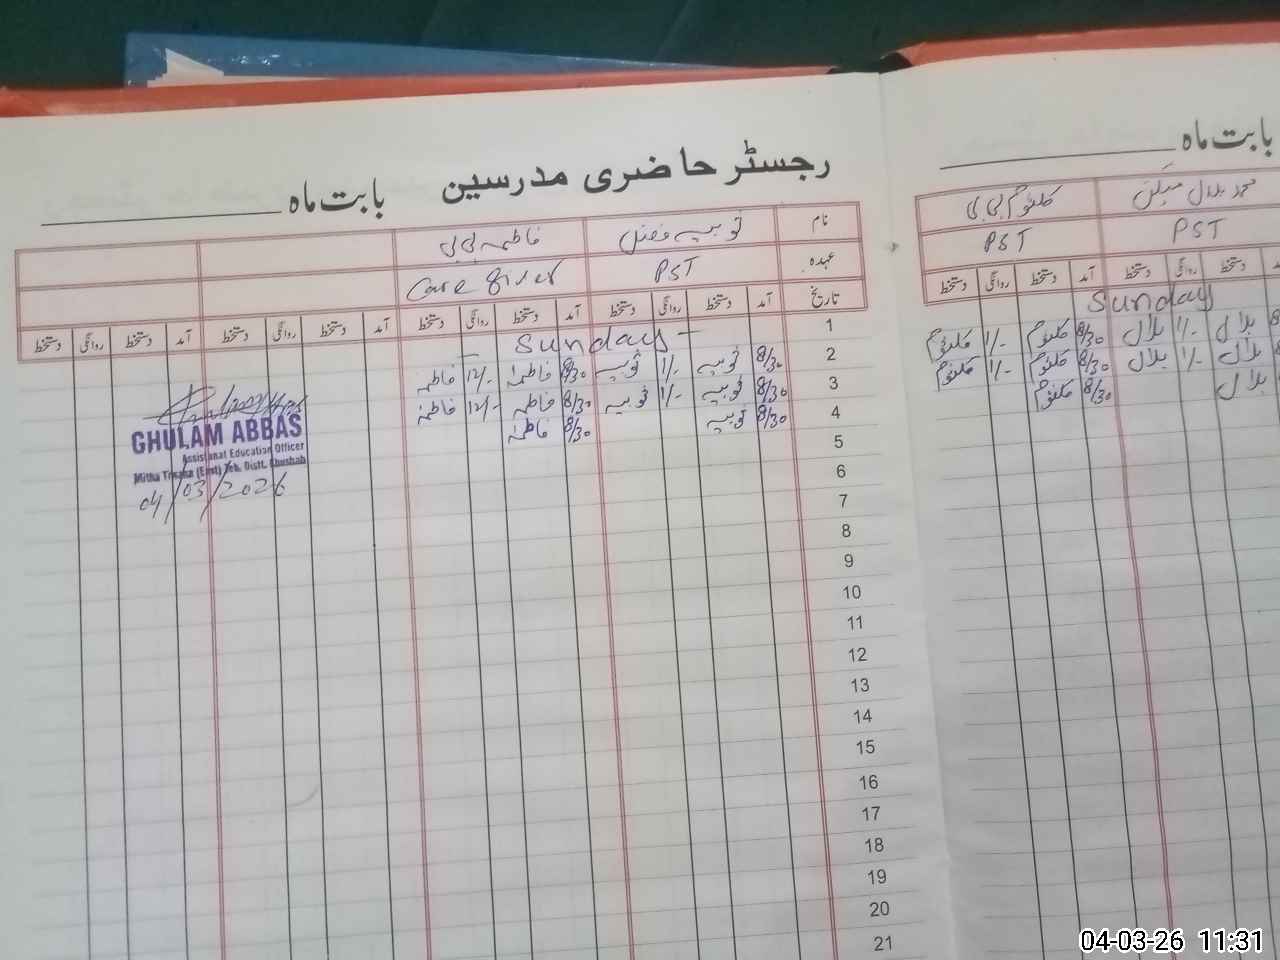 رجسٹر حاضری مدرسین بابت ماہ
نام ثوبیہ فضل فاطمہ بی بی
عہدہ PST Care giver
تاریخ آمد دستخط روانگی دستخط آمد دستخط روانگی دستخط آمد دستخط روانگی دستخط آمد دستخط روانگی دستخط
1 Sunday
2 8/30 ثوبیہ 1/- ثوبیہ 8/30 فاطمہ 12/- فاطمہ
3 8/30 ثوبیہ 1/- ثوبیہ 8/30 فاطمہ 12/- فاطمہ
4 8/30 ثوبیہ 8/30 فاطمہ
5
6
7
8
9
10
11
12
13
14
15
16
17
18
19
20
21
GHULAM ABBAS
Assistant Education Officer
Mitha Tiwana (East) Teh. Distt. Khushab
04/03/2026
بابت ماہ
محمد بلال کلثوم بی بی
PST PST
دستخط روانگی دستخط آمد دستخط روانگی دستخط
Sunday
بلال 1/- بلال 8/30 کلثوم 1/- کلثوم
بلال 1/- بلال 8/30 کلثوم 1/- کلثوم
بلال 8/30 کلثوم
04-03-26 11:31